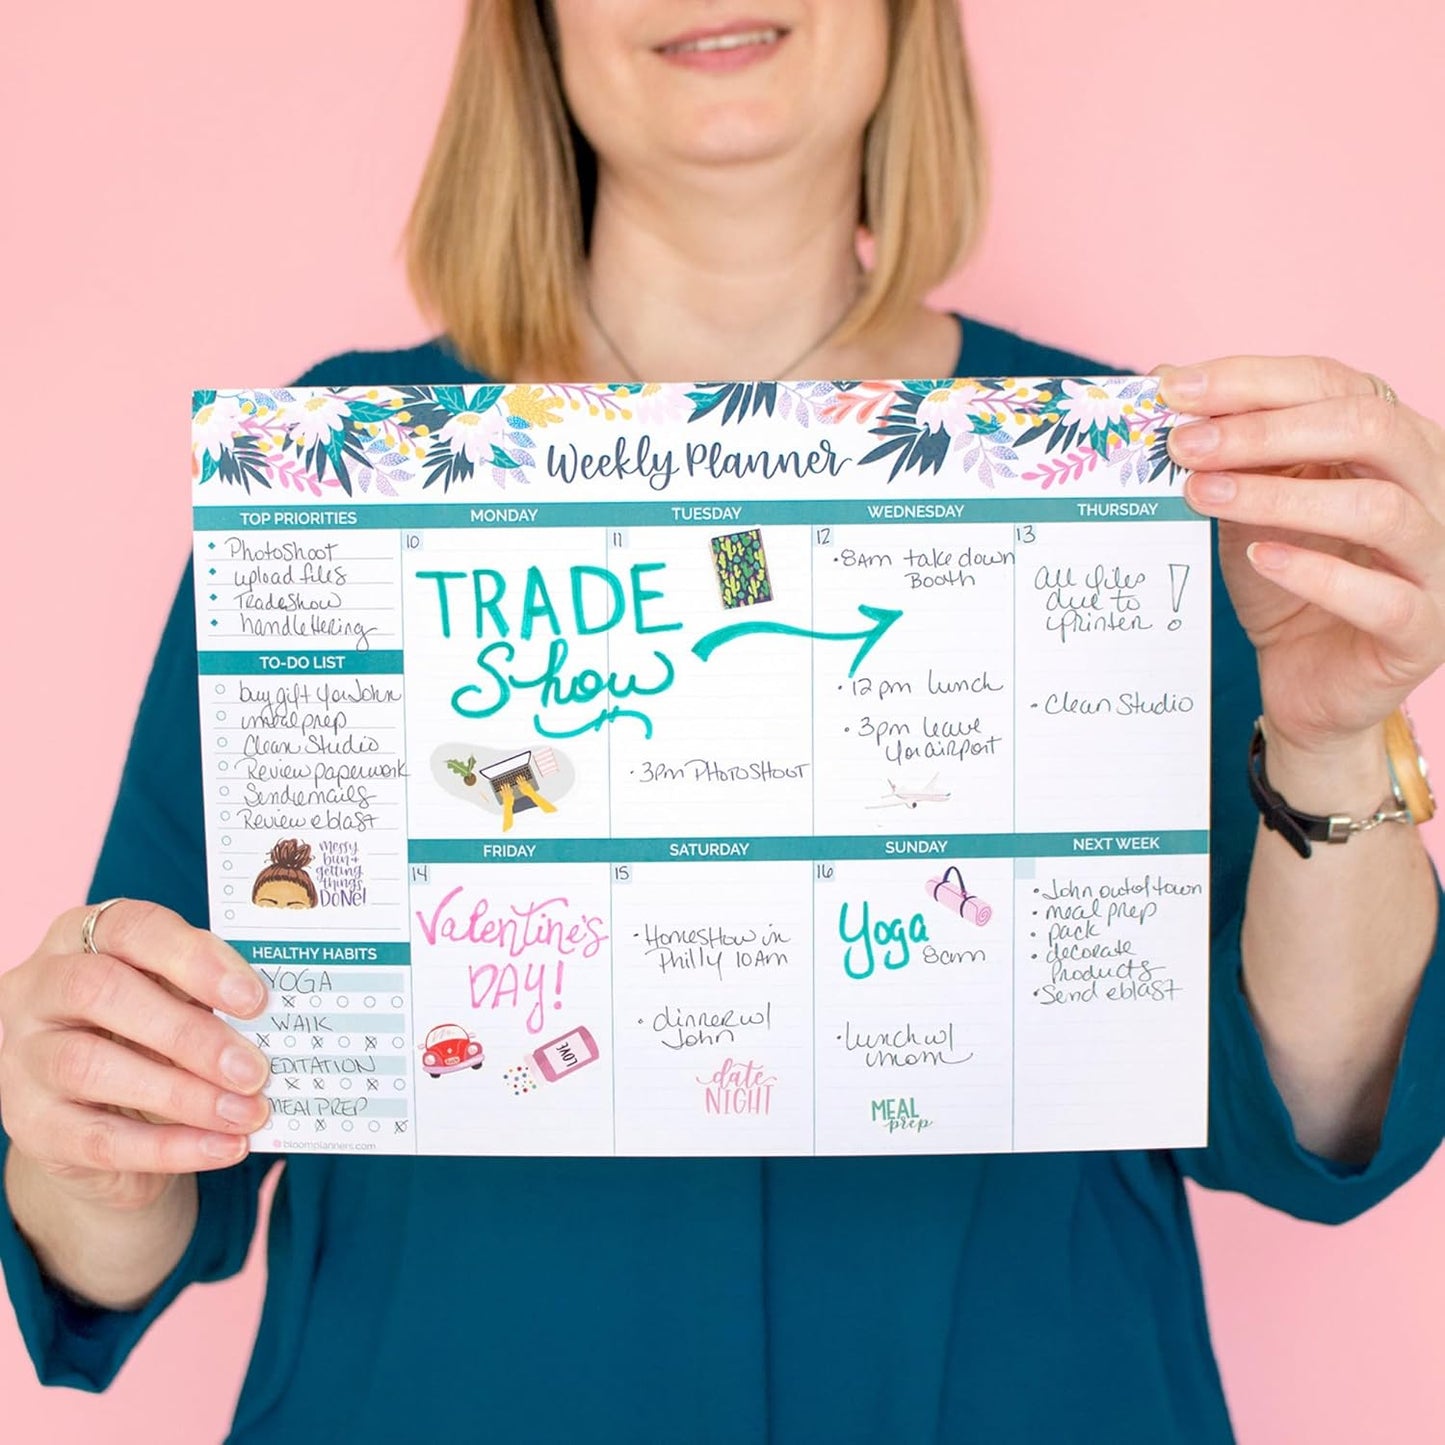 Weekly Planner
TOP PRIORITIES
Photoshoot
upload files
Tradeshow
handlettering
TO-DO LIST
buy gift for John
meal prep
Clean Studio
Review paperwork
Send emails
Review eblast
messy
bun +
getting
things
DONE!
HEALTHY HABITS
YOGA
WALK
EDITATION
MEAL PREP
bloomplanners.com
MONDAY
10
TRADE
Show
TUESDAY
11
• 3pm PHOTOSHOOT
WEDNESDAY
12
• 8AM take down
Booth
• 12pm lunch
• 3pm leave
for airport
THURSDAY
13
All files
due to
printer!
• Clean Studio
FRIDAY
14
Valentine's
DAY!
LOVE
SATURDAY
15
• Homeshow in
Philly 10AM
• dinner w/
John
date
NIGHT
SUNDAY
16
Yoga 8am
• lunch w/
mom
MEAL
prep
NEXT WEEK
• John out of town
• meal prep
• pack
• decorate
Products
• Send eblast